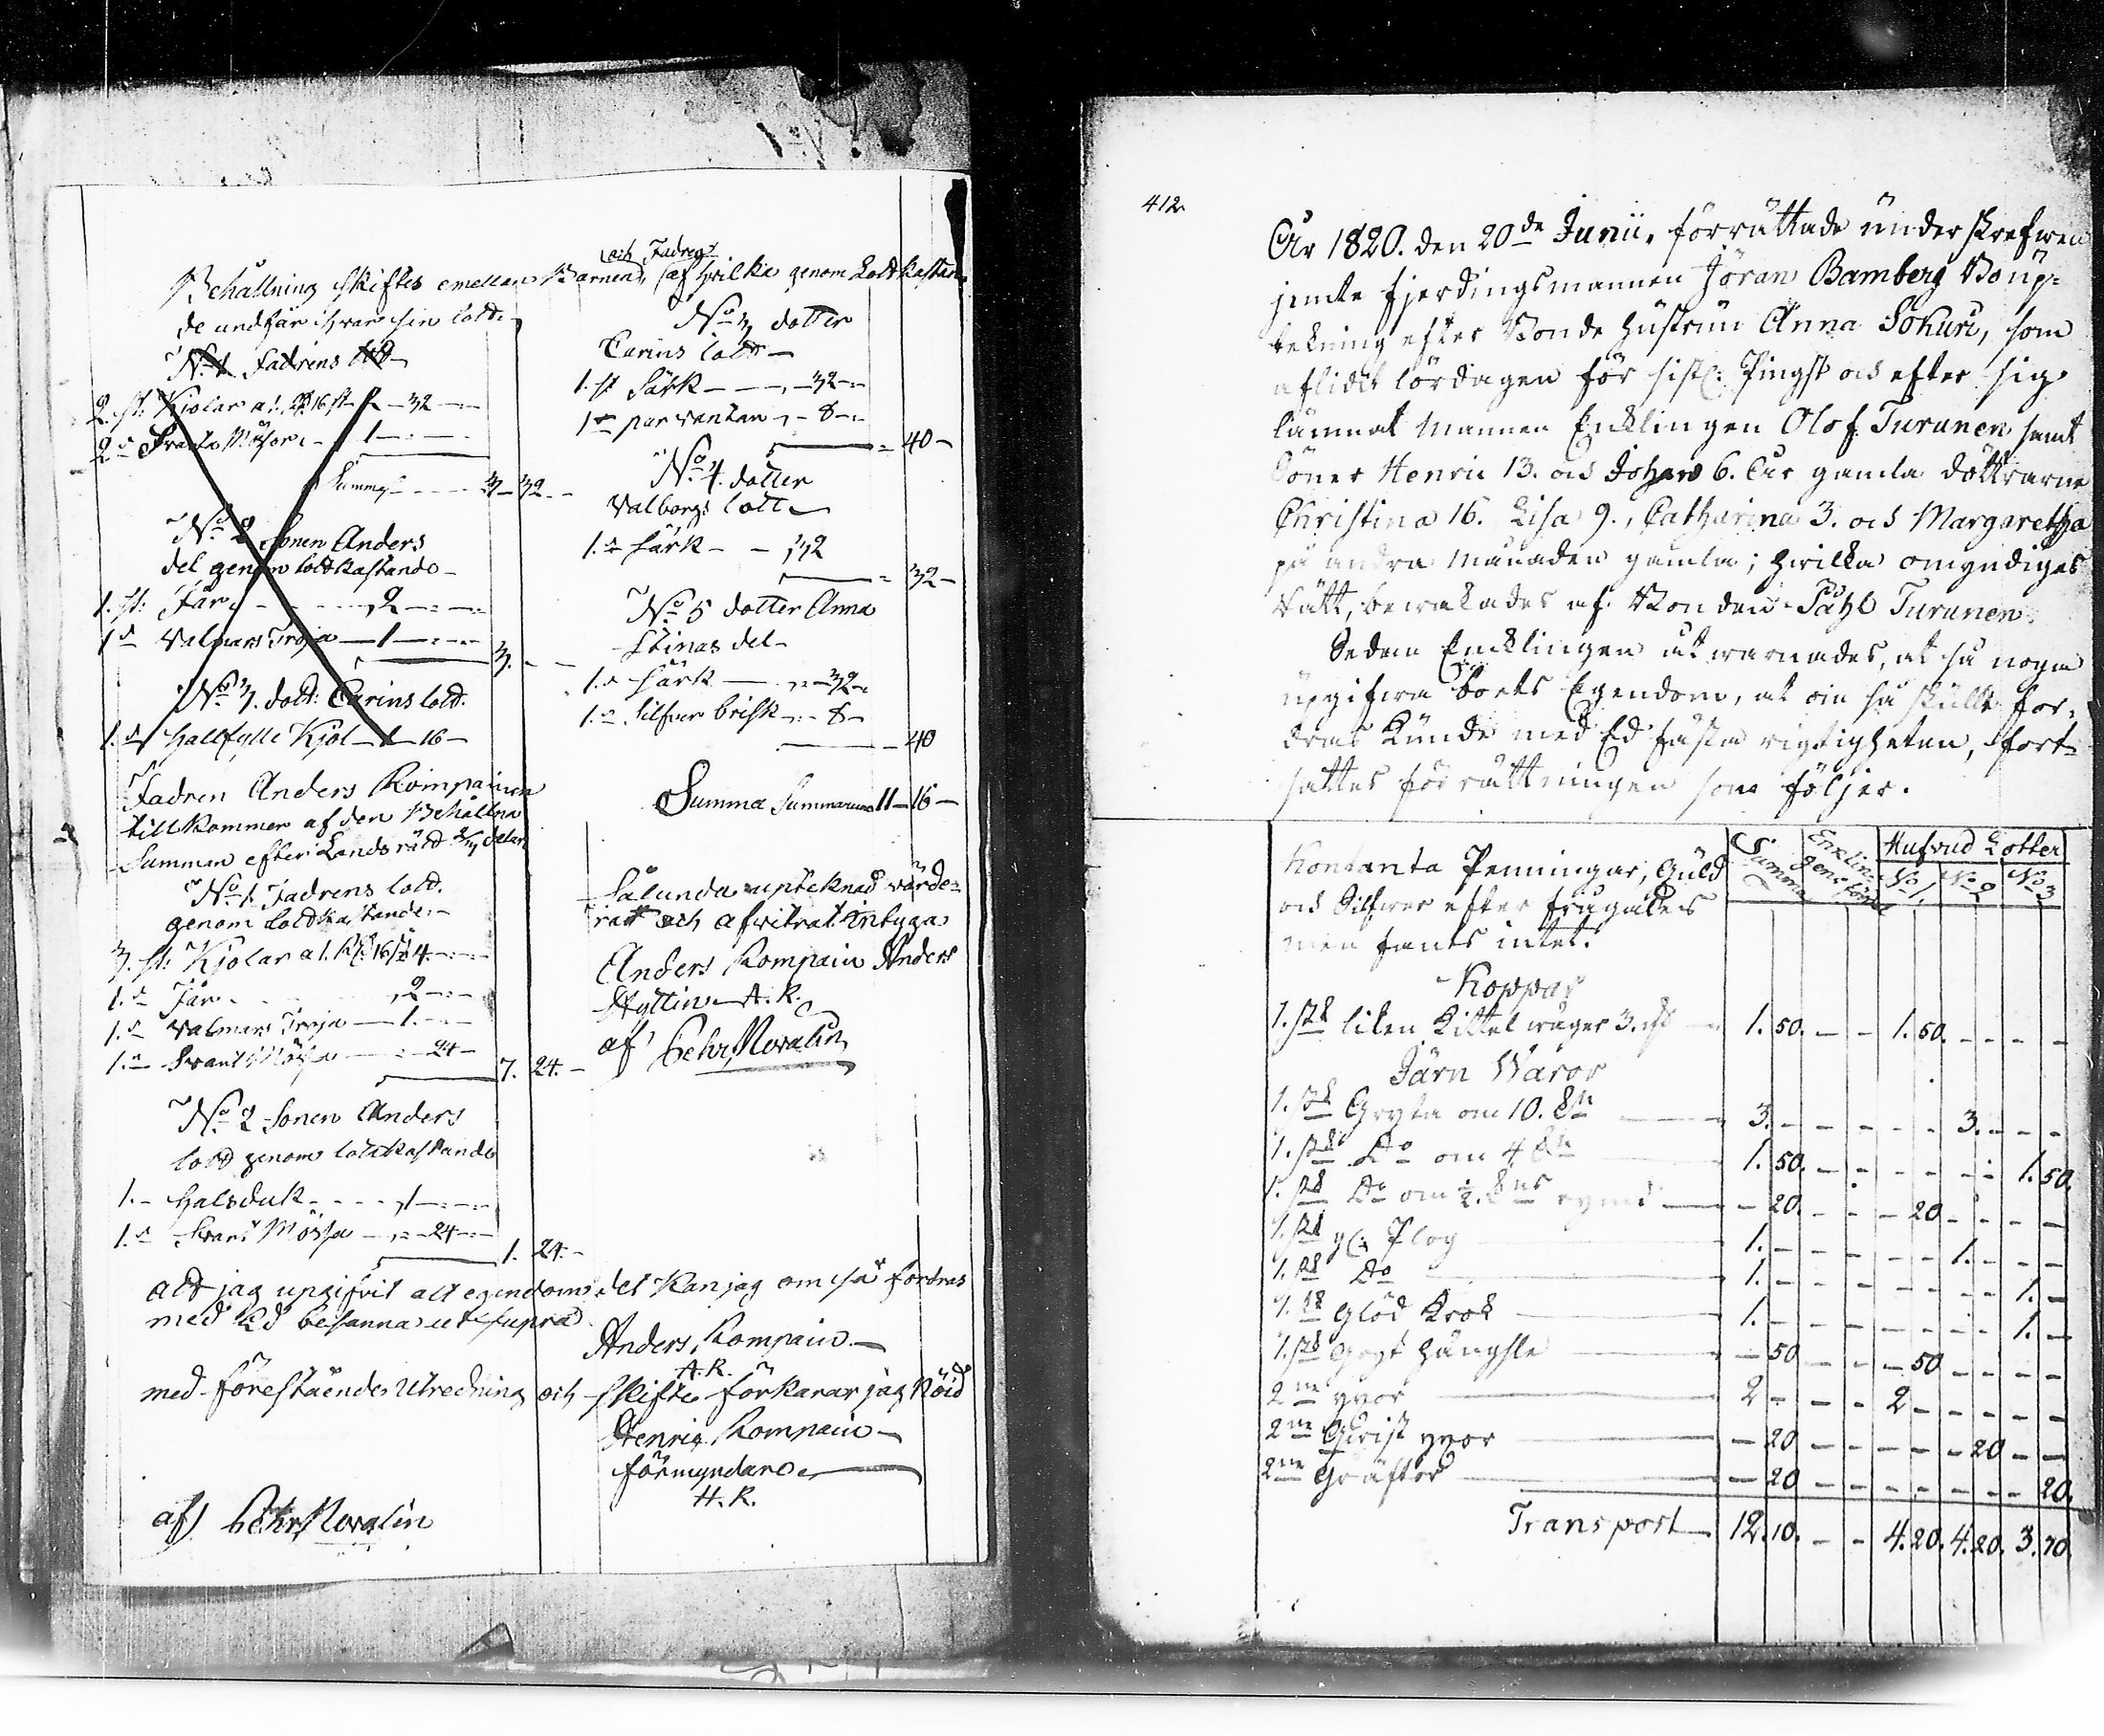 och Fadren
Behållning skiftes emellan Barnen, af hvilka genom Lottkastan
de undfår hvar sin lott.
No 1 Fadrens lott
2. st: Kjolar a 1. Rd 16 st 2 - 32
2. d Svarta Mössor - 1
Summa - 3 - 32
No 2 Sonen Anders
del genom lottkastande
1. st: Får - 2
1 d Valmars Tröja - 1
3.
No 3. dott: Carins lott.
1. d halfylle Kjol - 1 - 16 -
Fadren Anders Kompainen
tillkommer af den Behållna
Summan efter Lands rätt 2/3 delar
No 1. Fadrens lott.
genom Lottkastande
3. st: Kjolar a 1. Rd 16 st 4.
1. d Får 2
1. d Valmars Tröja - 1.
1. d Svart Mössa - 24 -
7. 24. -
No 2 Sonen Anders
lott genom lottkastande
1. - Halsduk - 1
1. d Svart Mössa - 24
1. 24. -
No 3 dotter
Carins lott
1. st Särk - 32
1 par vantar - 8
40 -
No 4. dotter
Valborgs lott
1. d särk - 32
32 -
No 5 dotter Anna
Stinas del
1. d särk - 32
1. d Silfver brisk - 8 -
40
Summa Summarum 11 - 16 -
Sålunda uptecknad värde-
rat och afvitrat intyga
Anders Kompain Anders
Hyttin A. K.
af Pehr Noralin
att jag upgifvit all egendom, det Kan jag om så fordras
med Ed besanna ut supra
Anders Kompain
A. K.
med förestående Utredning och skifte förklarar jag Nöjd
Henric Kompain
förmyndare
H. K.
af Pehr Noralin
412.
År 1820. den 20de Junii, förrättade underskrefven
jemte fjerdingsmannen Jöran Bamberg Boup-
tekning efter Bonde hustrun Anna Sokuri, som
aflidit lördagen för sistl: Pingst och efter sig
lämnat Mannen Encklingen Olof Turunen samt
Söner Henric 13. och Johan 6. År gamla döttrarne
Christina 16. Lisa 9., Catharina 3. och Margaretha
på andra månaden gamla; hvilka omyndiges
Rätt, bevakades af Bonden Påhl Turunen.
Sedan Encklingen utvarnades, at så noga
upgifva boets Egendom, at om så skulle for-
dras Kunde med Ed fästa rigtigheten, fort-
sattes förrättningen som följer.
Summa Enklin- Hufvud Lotter
gens No 1. No 2 No 3
Kontanta Penningar, Guld
och Silfver efter frågades
men fants intet.
Koppar
1. st liten Kittel väger 3. 1. 50. - - 1. 50. - - - -
Järn Varor
1. st Gryta om 10. 3. - - - - - 3. - - -
1. st Do om 4 1. 50. - - - - - - 1. 50.
1. st Do om ½. - 20. - - - 20 - - - -
1. st gl: Plog 1. - - - - - 1. - - -
1. st Do 1. - - - - - - - 1. -
1. st Glöd Krok 1. - - - - - - - 1. -
1. st hängsle - 50 - - - 50 - - - -
2ne yxor 2 - - - 2 - - - - -
2ne yxor - 20 - - - - - 20 - -
2ne Gräftor - 20 - - - - - - - 20.
Transport 12. 10. - - 4. 20. 4. 20. 3. 70